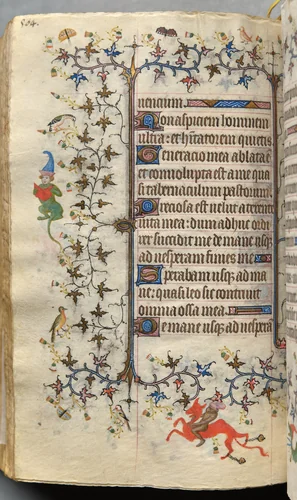 504.
uencium.
Non aspiciem hominem
ultra: et habitatorem quietis.
Generacio mea ablata e
et convoluta est a me qua
si tabernaculum pastorum.
Precisa est uelut a texente
uita mea: dum adhuc ordi
rer succidit me de mane usq
ad uesperam finies me
Sperabam usq ad ma
ne: quasi leo sic contriuit
omnia ossa mea.
De mane usq ad uespera